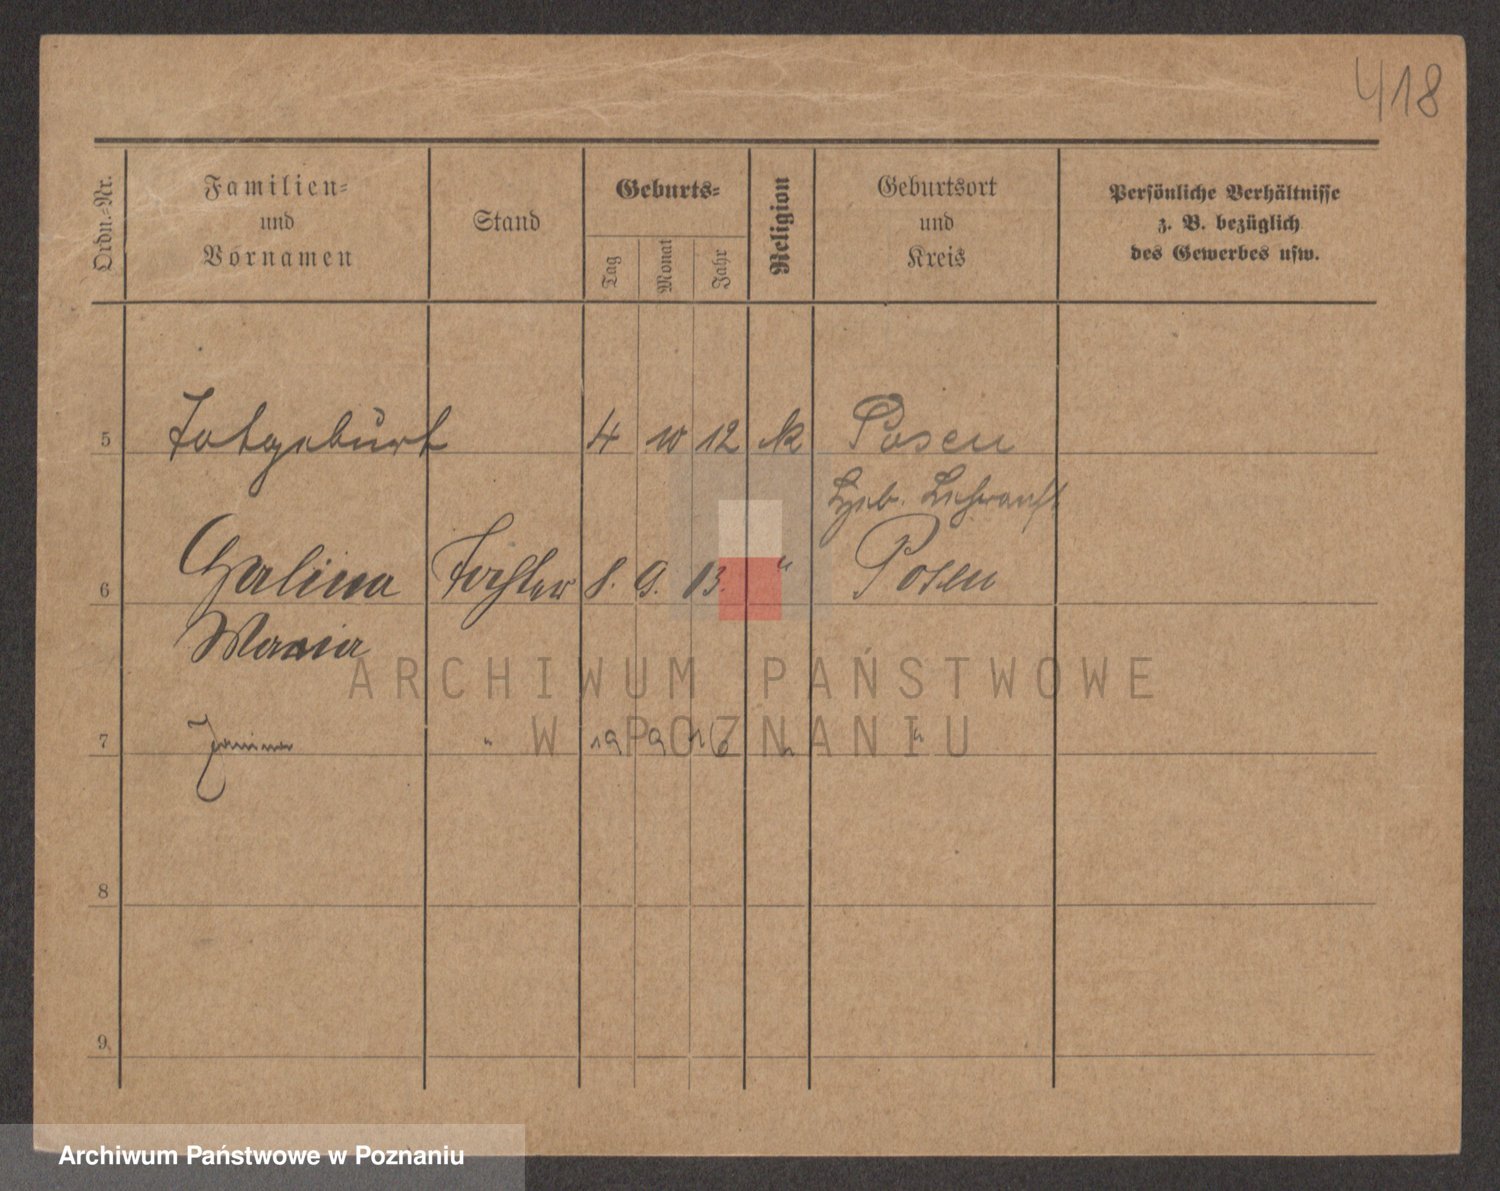 418
Ordn.-Nr.
Familien-
und
Vornamen
Stand
Geburts-
Tag
Monat
Jahr
Religion
Geburtsort
und
Kreis
Persönliche Verhältnisse
z. B. bezüglich
des Gewerbes usw.
5 Totgeburt 4 10 12 k Posen
Heb.
6 Halina Tochter 8. 9. 13. " Posen
Maria
7 Janina " 19 9 16 " "
8
9
ARCHIWUM PAŃSTWOWE
W POZNANIU
Archiwum Państwowe w Poznaniu